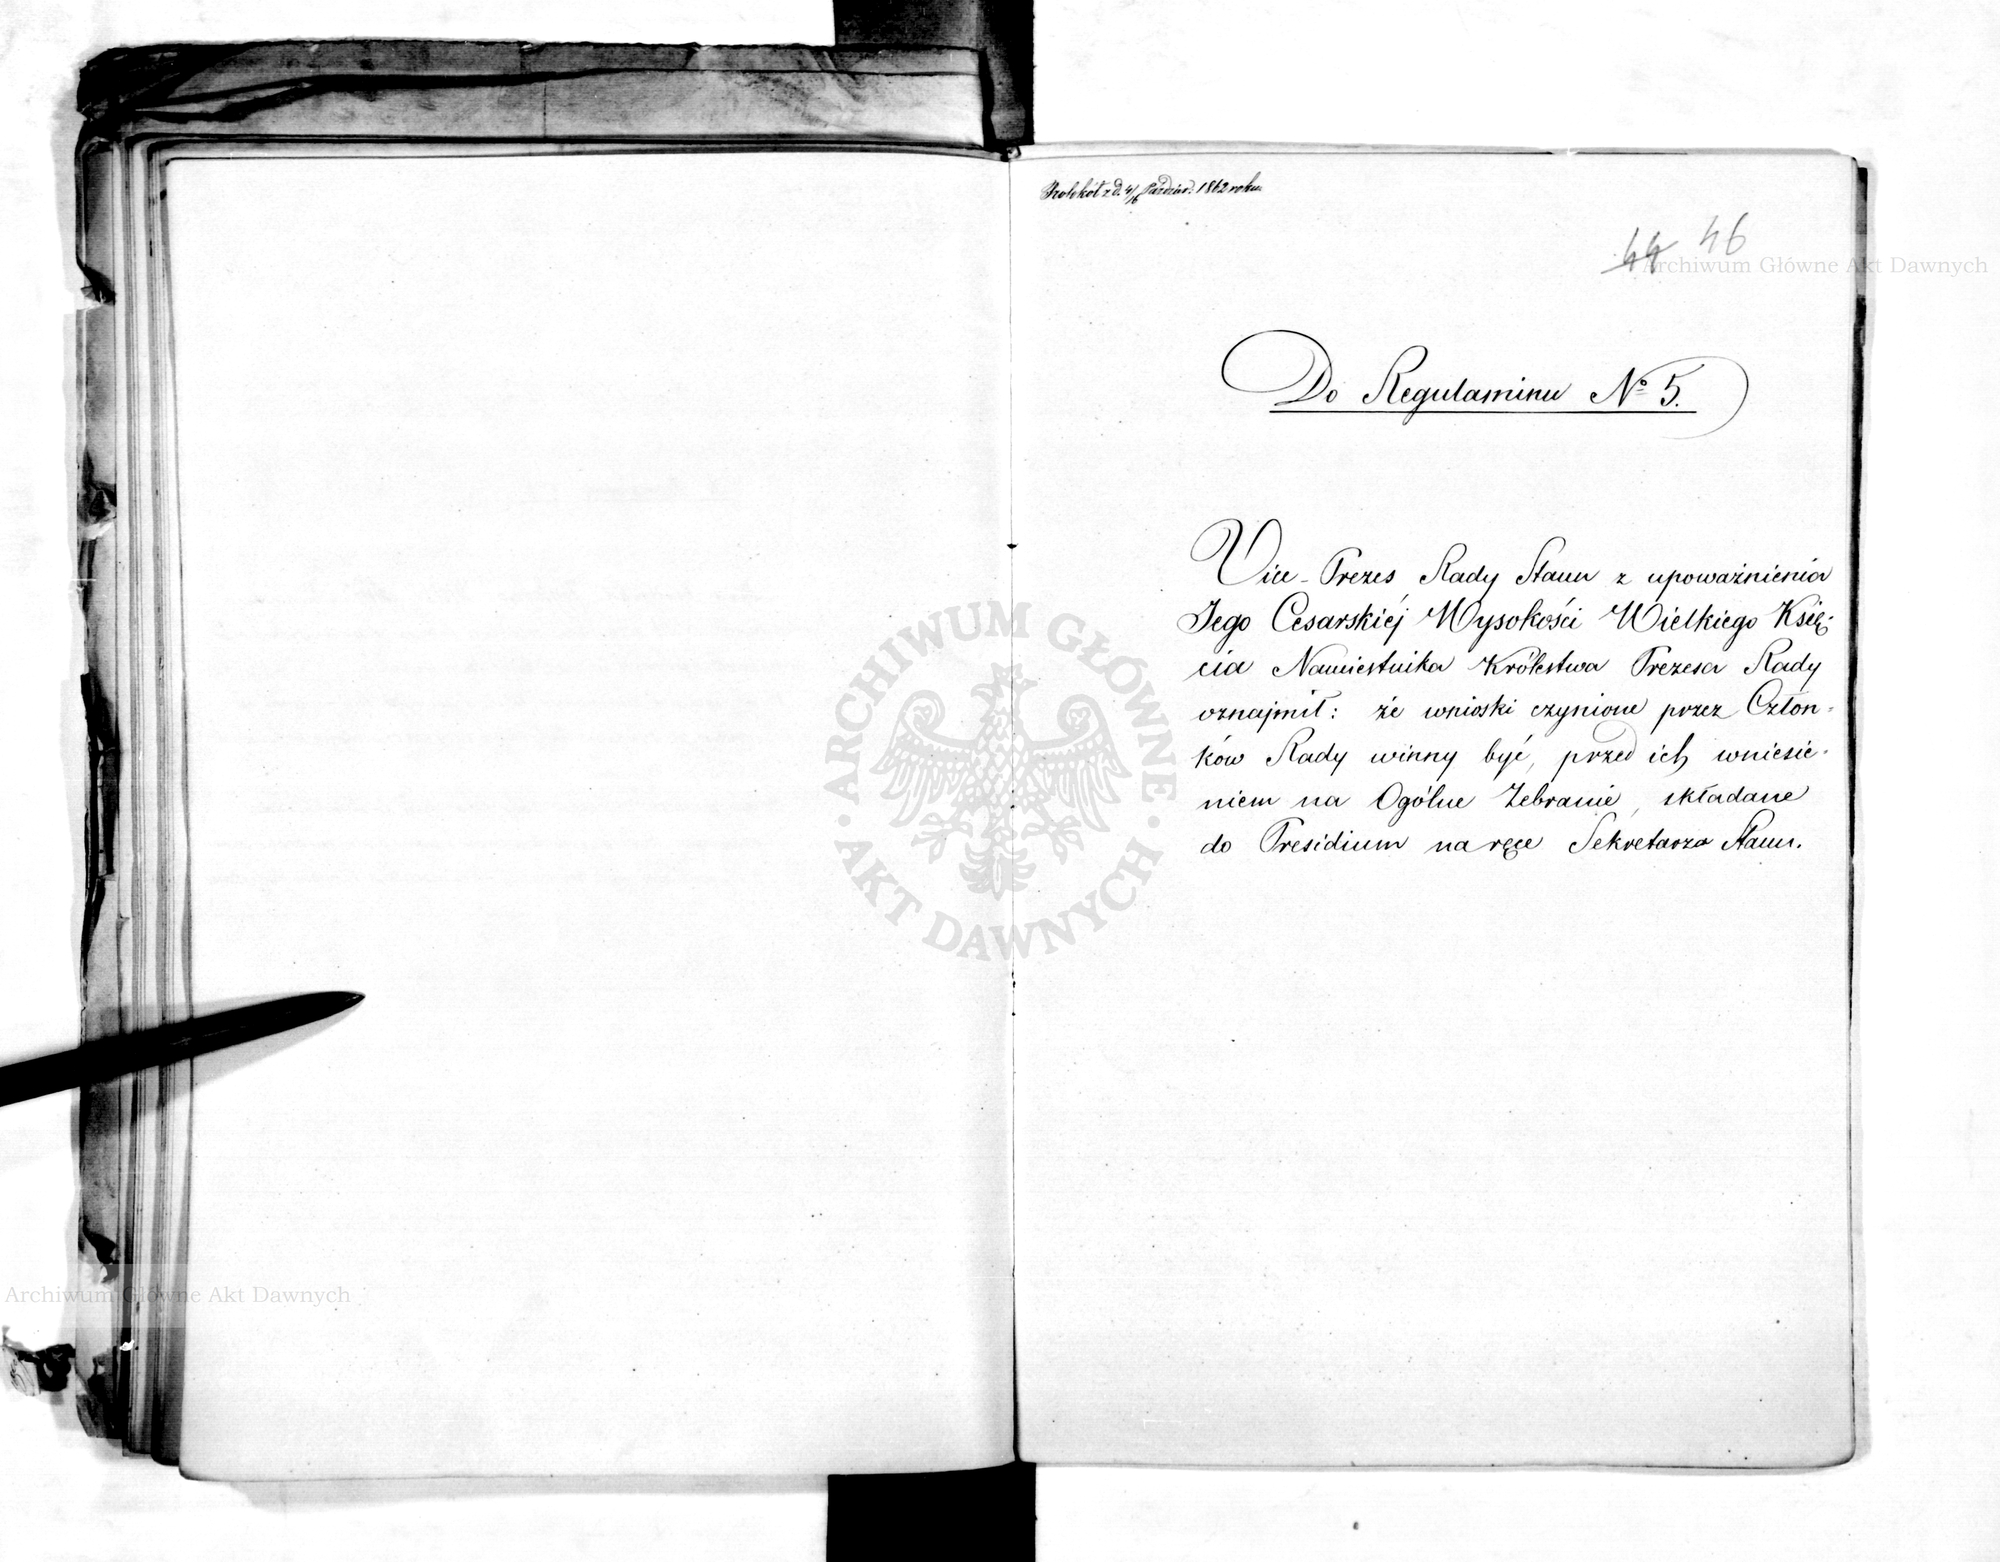 Protokół z d. 4/16 Paździer: 1862 roku.
44 46
Archiwum Główne Akt Dawnych
Do Regulaminu № 5.
Vice-Prezes Rady Stanu z upoważnienia
Jego Cesarskiéj Wysokości Wielkiego Księ-
cia Namiestnika Królestwa Prezesa Rady
oznajmił: że wnioski czynione przez Człon-
ków Rady winny być, przed ich wniesie-
niem na Ogólne Zebranie, składane
do Presidium na ręce Sekretarza Stanu.
ARCHIWUM GŁÓWNE
AKT DAWNYCH
Archiwum Główne Akt Dawnych